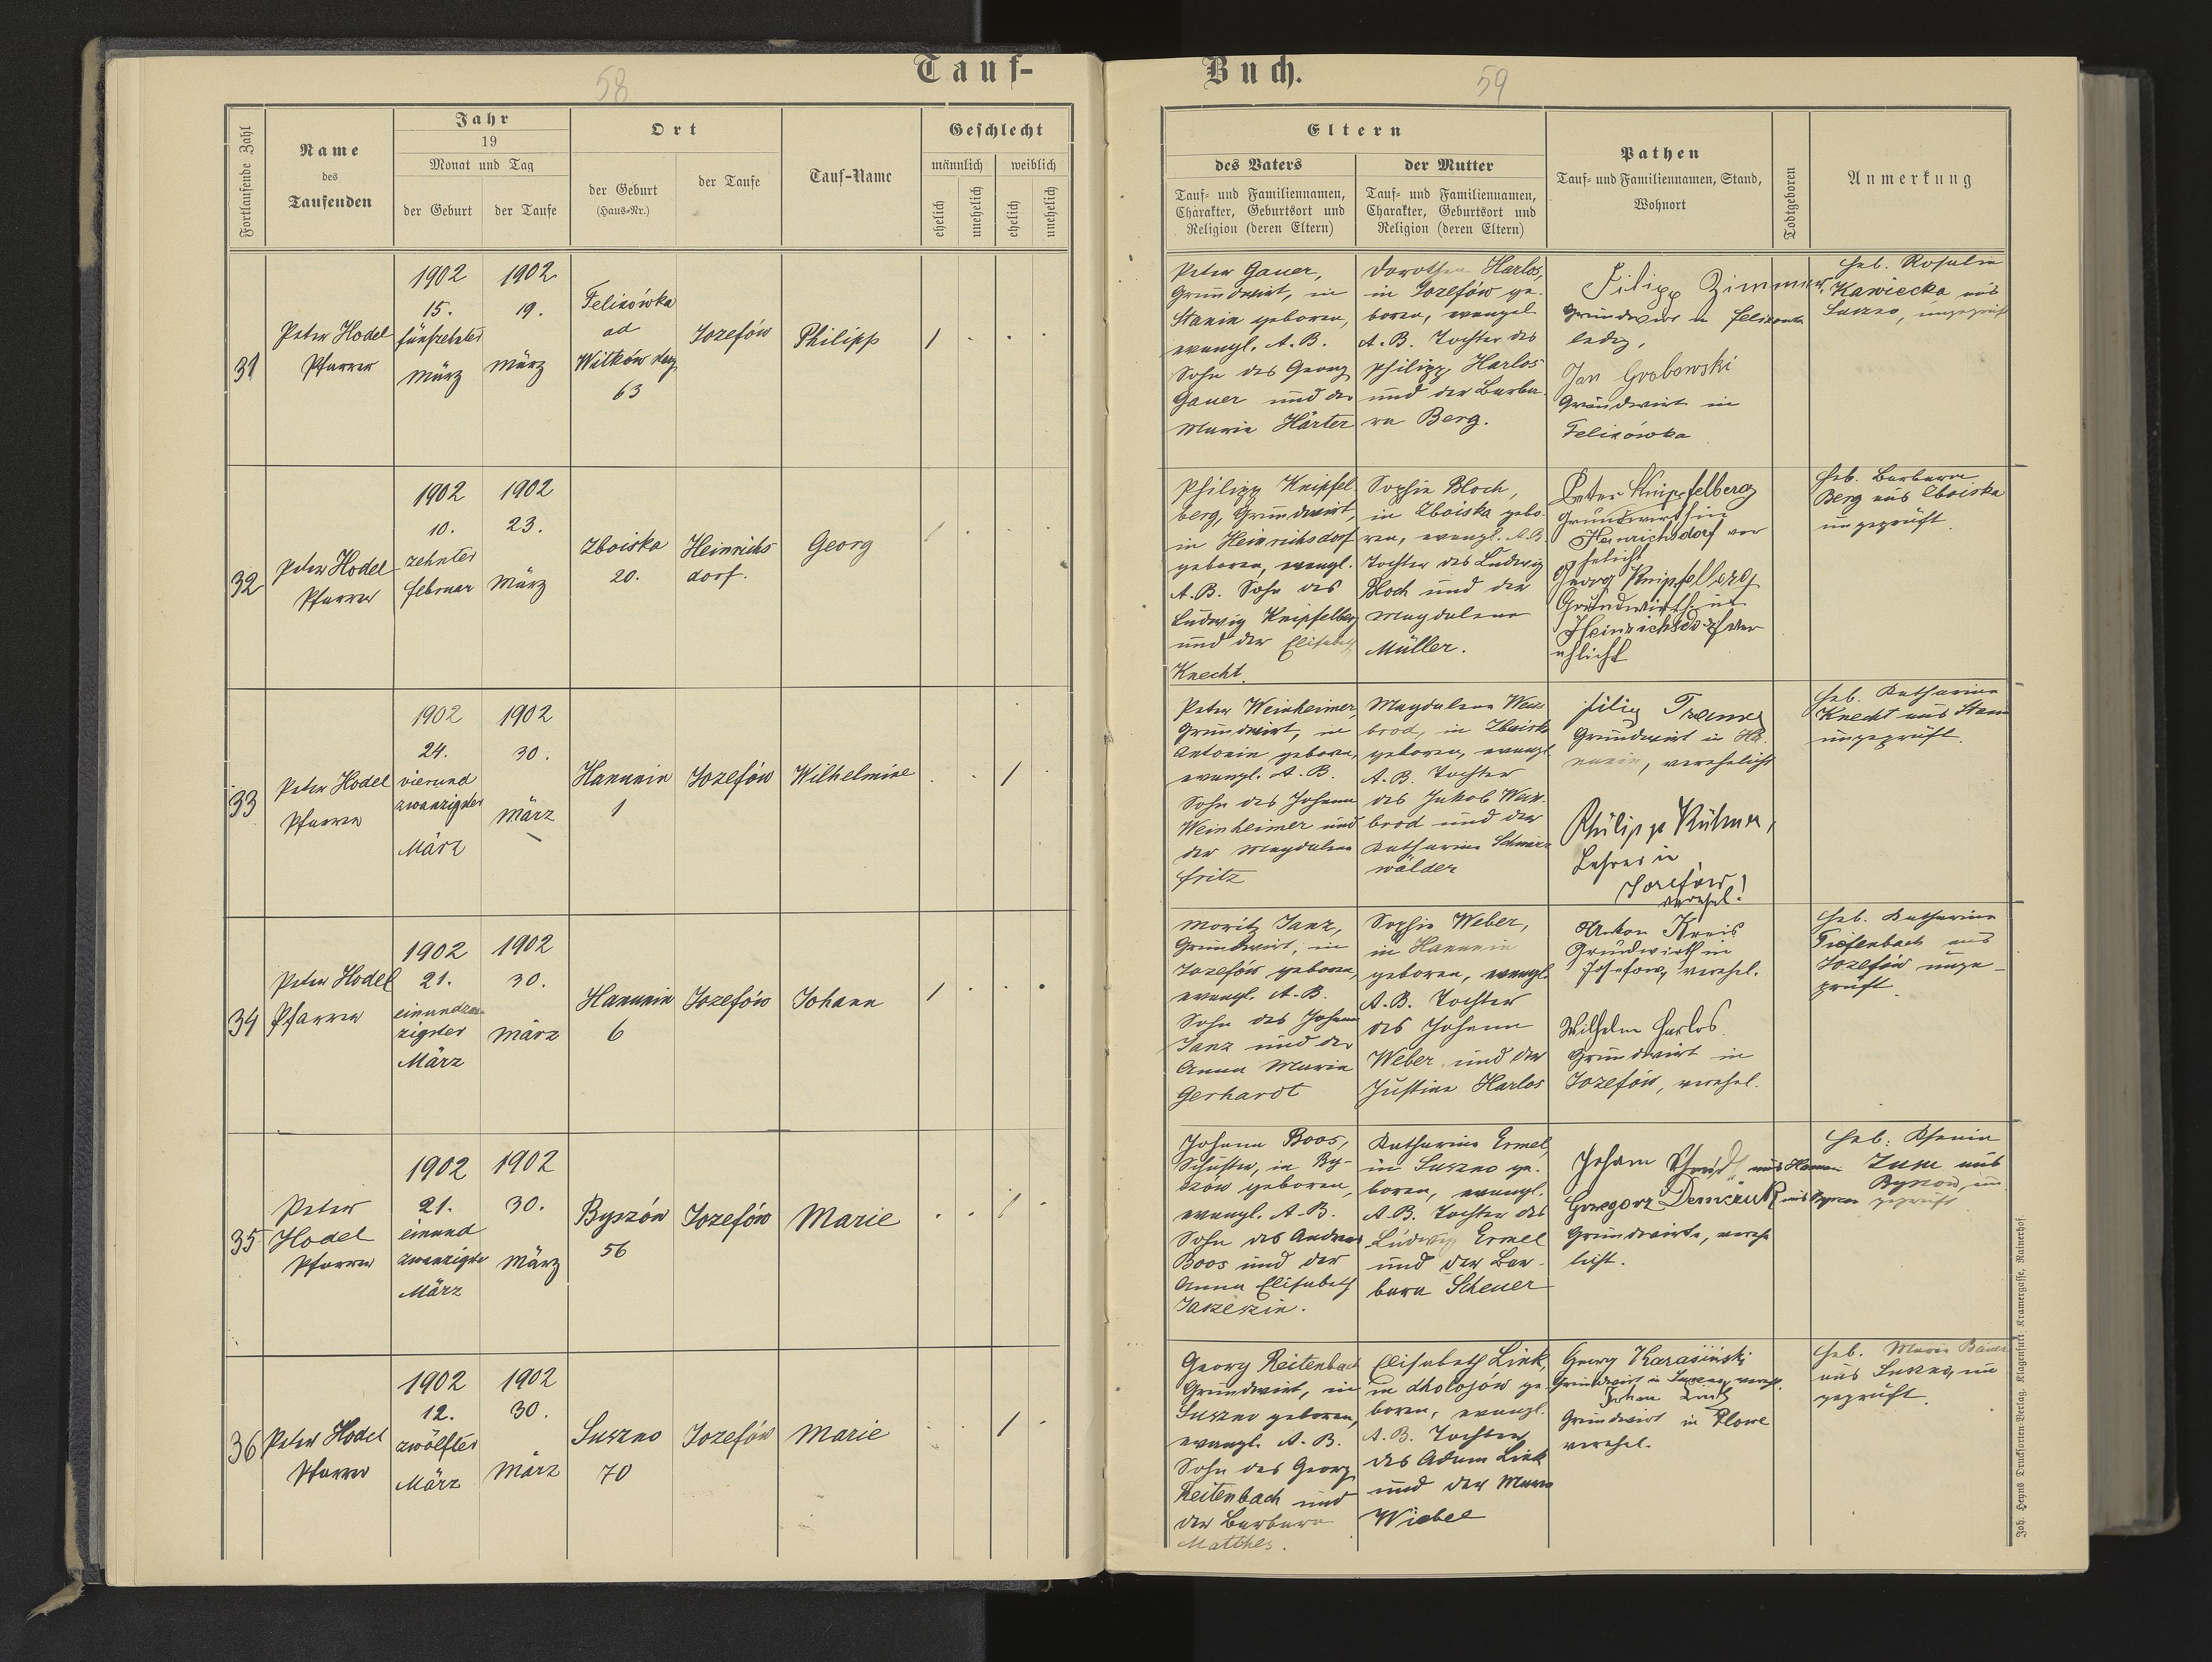 58
Tauf-
Fortlaufende Zahl
Name
des
Taufenden
Jahr
19
Monat und Tag
der Geburt
der Taufe
Ort
der Geburt
(Haus-Nr.)
der Taufe
Tauf-Name
Geschlecht
männlich
weiblich
ehelich
unehelich
ehelich
unehelich
31
Peter Hodel
Pfarrer
1902
15.
fünfzehnter
März
1902
19.
März
Felizówka
ad
Witków
63
Jozefów
Philipp
32
Peter Hodel
Pfarrer
1902
10.
zehnter
februar
1902
23.
März
Zboiska
20.
Heinrichs
dorf.
Georg
33
Peter Hodel
Pfarrer
1902
24.
vierund
zwanzigster
März
1902
30.
März
Hanunin
1
Jozefów
Wilhelmine
34
Peter Hodel
Pfarrer
1902
21.
einundzwan
zigster
März
1902
30.
März
Hanunin
6
Jozefów
Johann
35
Peter
Hodel
Pfarrer
1902
21.
einund
zwanzigster
März
1902
30.
März
Byszów
56
Jozefów
Marie
36
Peter Hodel
Pfarrer
1902
12.
zwölfter
März
1902
30.
März
Suszno
70
Jozefów
Marie
Buch.
59
Eltern
des Vaters
Tauf- und Familiennamen,
Charakter, Geburtsort und
Religion (deren Eltern)
der Mutter
Tauf- und Familiennamen,
Charakter, Geburtsort und
Religion (deren Eltern)
Pathen
Tauf- und Familiennamen, Stand,
Wohnort
Todtgeboren
Anmerkung
Peter Gauer,
Grundwirt, in
Stanin geboren,
evangl. A. B.
Sohn des Georg
Gauer und der
Maria Härter
Dorothea Harlos,
in Jozefów ge-
boren, evangel.
A. B. Tochter des
Philipp Harlos
und der Barba-
ra Berg.
Filipp Zimmer,
Grundwirt in Felizowka
ledig,
Jan Grabowski
Grundwirt in
Felizówka
Heb. Rosalia
Kawiecka aus
Suszno, ungeprüft
Philipp Knipfel
berg, Grundwirt,
in Heinrichsdorf
geboren, evangl.
A. B. Sohn des
Ludwig Knipfelberg
und der Elisabeth
Knecht.
Sophia Bloch,
in Zboiska gebo-
ren, evangl. A. B.
Tochter des Ludwig
Bloch und der
Magdalena
Müller.
Peter Knipfelberg
Grundwirth in
Heinrichsdorf ver
ehelicht
Georg Knipfelberg
Grundwirth in
Heinrichsdorf ver
ehlicht
Heb. Barbara
Berg aus Zboiska
ungeprüft.
Peter Weinheimer,
Grundwirt, in
Antonin geboren,
evangl. A. B.
Sohn des Johann
Weinheimer und
der Magdalena
Fritz
Magdalena Wein
brod, in Zboiska
geboren, evangl.
A. B. Tochter
des Jakob Wein-
brod und der
Katharina Schwarz
wälder
Grundwirt in Ha
nunin, verehelicht
Philipp Kühner,
Lehrer in
Jozefów
verehel.!
Heb. Katharina
Knecht aus Stanin
ungeprüft.
Moritz Janz,
Grundwirt, in
Jozefów geboren,
evangl. A. B.
Sohn des Johann
Janz und der
Anna Maria
Gerhardt
Sophie Weber,
in Hanunin
geboren, evangl.
A. B. Tochter
des Johann
Weber und der
Justina Harlos
Anton Kreis
Grundwirth in
Josefow, verehel.
Wilhelm Harlos
Grundwirt in
Jozefów, verehel.
Heb. Katharina
Tiefenbach aus
Jozefów unge-
prüft.
Johann Boos,
Schuster, in By-
szów geboren,
evangl. A. B.
Sohn des Andreas
Boos und der
Anna Elisabeth
Katharina Ermel,
in Suszno ge-
boren, evangl.
A. B. Tochter des
Ludwig Ermel
und der Bar-
bara Scheuer
Johann Schmidt aus Hanunin
Grzegorz Demczuk aus Byszow
Grundwirte, vereh
licht.
Heb.
aus
Byszow, un
geprüft
Georg Reitenbach
Grundwirt, in
Suszno geboren,
evangl. A. B.
Sohn des Georg
Reitenbach und
der Barbara
Matthes.
Elisabeth Link,
in Cholojów ge
boren, evangl.
A. B. Tochter
des Adam Link
und der Maria
Wiebel
Georg Karasiński
Grundwirt in Suszno, verehl.
Johann Link
Grundwirt in Plowe
verehel.
Heb. Maria Bauer
aus Suszno, un
geprüft.
Joh. Heyns Drucksorten-Verlag, Klagenfurt: Kramergasse, Rainerhof.